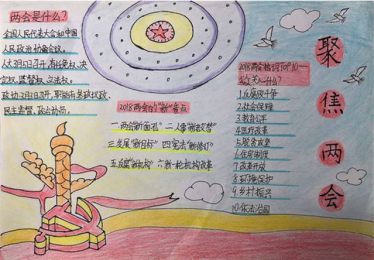 两会是什么？
全国人民代表大会和中国
人民政治协商会议。
人大3月5日召开，有任免权、决
定权、监督权、立法权。
政协3月3日召开，职能有参政议政、
民主监督、政治协商。
2018两会的"新"看点
一.两会"新面孔" 二.人事"新"
三.发展"新目标" 四.宪法"新修订"
五."新机构" 六.新一轮机构改革
2018两会热词TOP10—
关心什么？
1.反腐败斗争
2.社会保障
3.教育公平
4.医疗改革
5.脱贫攻坚
6.住房制度
7.改革开放
8.环境保护
9.乡村振兴
10.依法治国
聚
焦
两
会